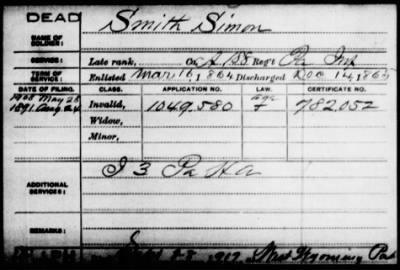 DEAD
NAME OF SOLDIER: Smith Simon
SERVICE: Late rank, Co. A, 58 Reg't Pa Inf
TERM OF SERVICE: Enlisted Mar 16, 1864 Discharged Dec 14, 1865
DATE OF FILING. CLASS. APPLICATION NO. LAW. CERTIFICATE NO.
1908 May 28
1891 Aug 24 Invalid, 1049.580 age 782.052
Widow,
Minor,
ADDITIONAL SERVICES: I 3 Pa HA
REMARKS:
1917, West Wyoming Pa